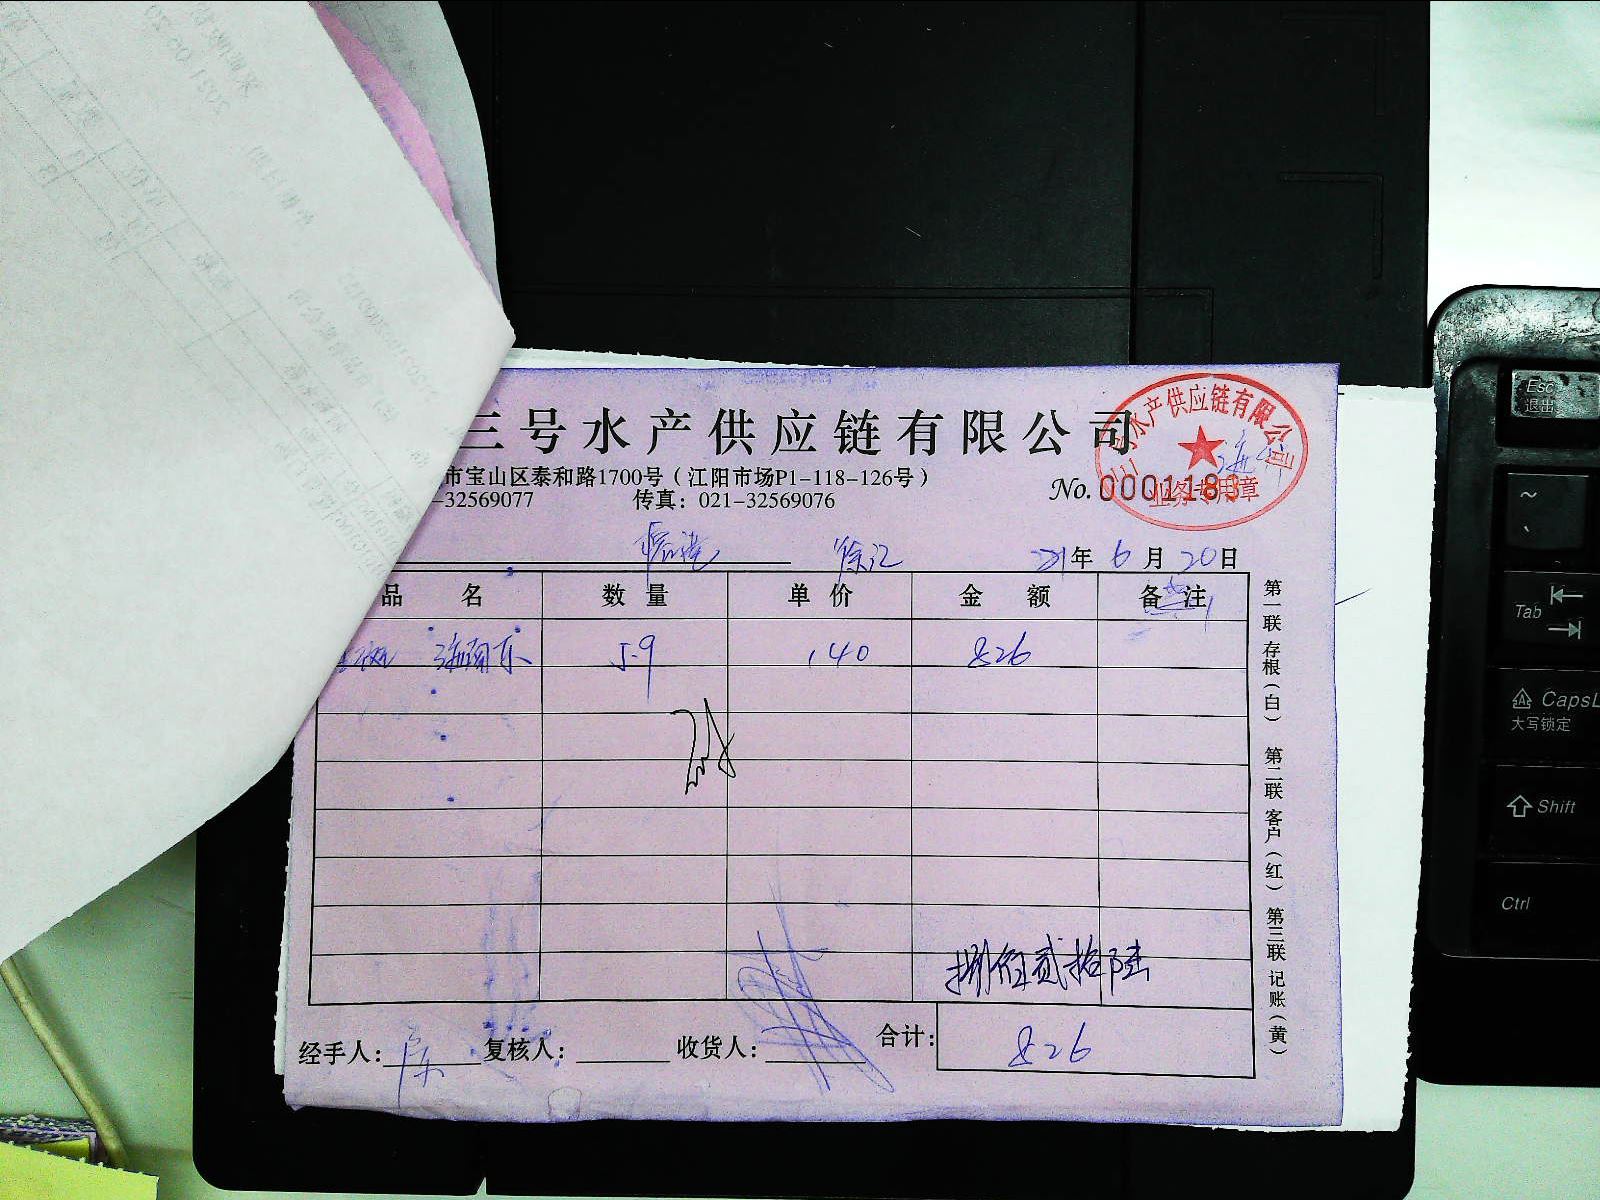 三号水产供应链有限公司
市宝山区泰和路1700号（江阳市场P1-118-126号）
-32569077 传真：021-32569076
No. 0001183
三号水产供应链有限公司
业务专用章
徐汇 21年 6月 20日
品名 数量 单价 金额 备注
5.9 140 826
捌佰贰拾陆
经手人： 复核人： 收货人： 合计： 826
第一联 存根（白） 第二联 客户（红） 第三联 记账（黄）
Esc
退出
~
、
Tab
CapsL
大写锁定
Shift
Ctrl